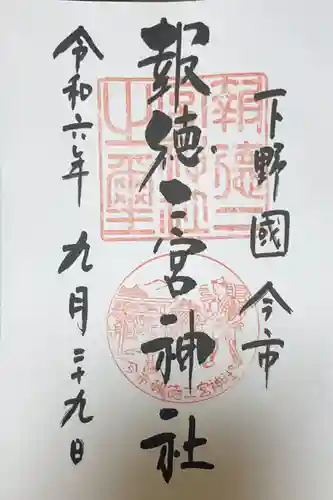 下野國 今市
報徳二宮神社
令和六年 九月二十九日
報徳二宮神社之璽
今市 報徳二宮神社